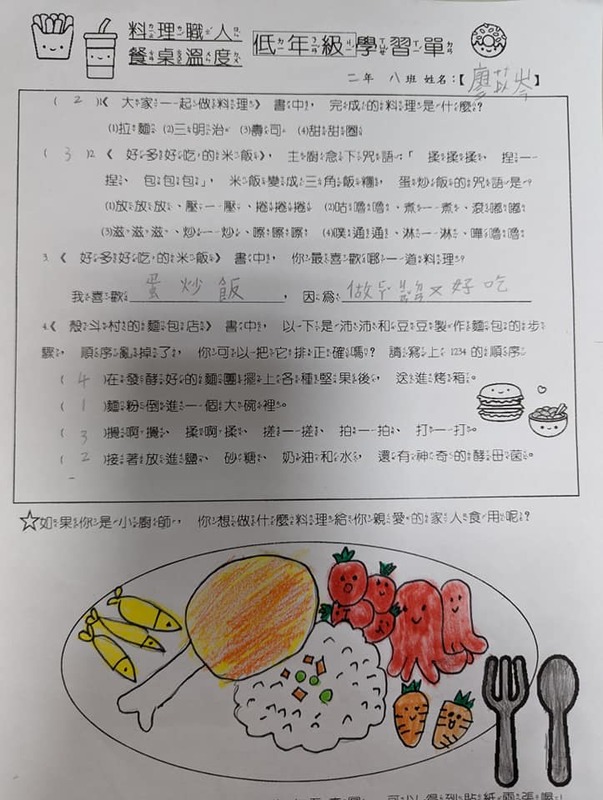 料理職人
餐桌溫度
低年級學習單
二年 八班 姓名:【廖苡岑】
( 2 )1《 大家一起做料理》 書中, 完成的料理是什麼?
(1)拉麵(2)三明治(3)壽司 (4)甜甜圈
( 3 )2 《 好多好吃的米飯》, 主廚念下咒語:「 揉揉揉、 捏一
捏、 包包包」, 米飯變成三角飯糰, 蛋炒飯的咒語是?
(1)放放放、壓一壓、捲捲捲 (2)咕嚕嚕、煮一煮、滾嘟嘟
(3)滋滋滋、炒一炒、嚓嚓嚓 (4)噗通通、淋一淋、嘩嚕嚕
3.《 好多好吃的米飯》 書中, 你最喜歡哪一道料理?
我喜歡 蛋炒飯 , 因為 做 又好吃
4.《 殼斗村的麵包店》 書中, 以下是沛沛和豆豆製作麵包的步
驟, 順序亂掉了, 你可以把它排正確嗎? 請寫上 1234 的順序
( 4 )在發酵好的麵團擺上各種堅果後, 送進烤箱。
( 1 )麵粉倒進一個大碗裡。
( 3 )攪啊攪、 揉啊揉、 搓一搓、 拍一拍、 打一打。
( 2 )接著放進鹽、 砂糖、 奶油和水, 還有神奇的酵母菌。
☆如果你是小廚師, 你想做什麼料理給你親愛的家人食用呢?
可以得到貼紙兩張喔!